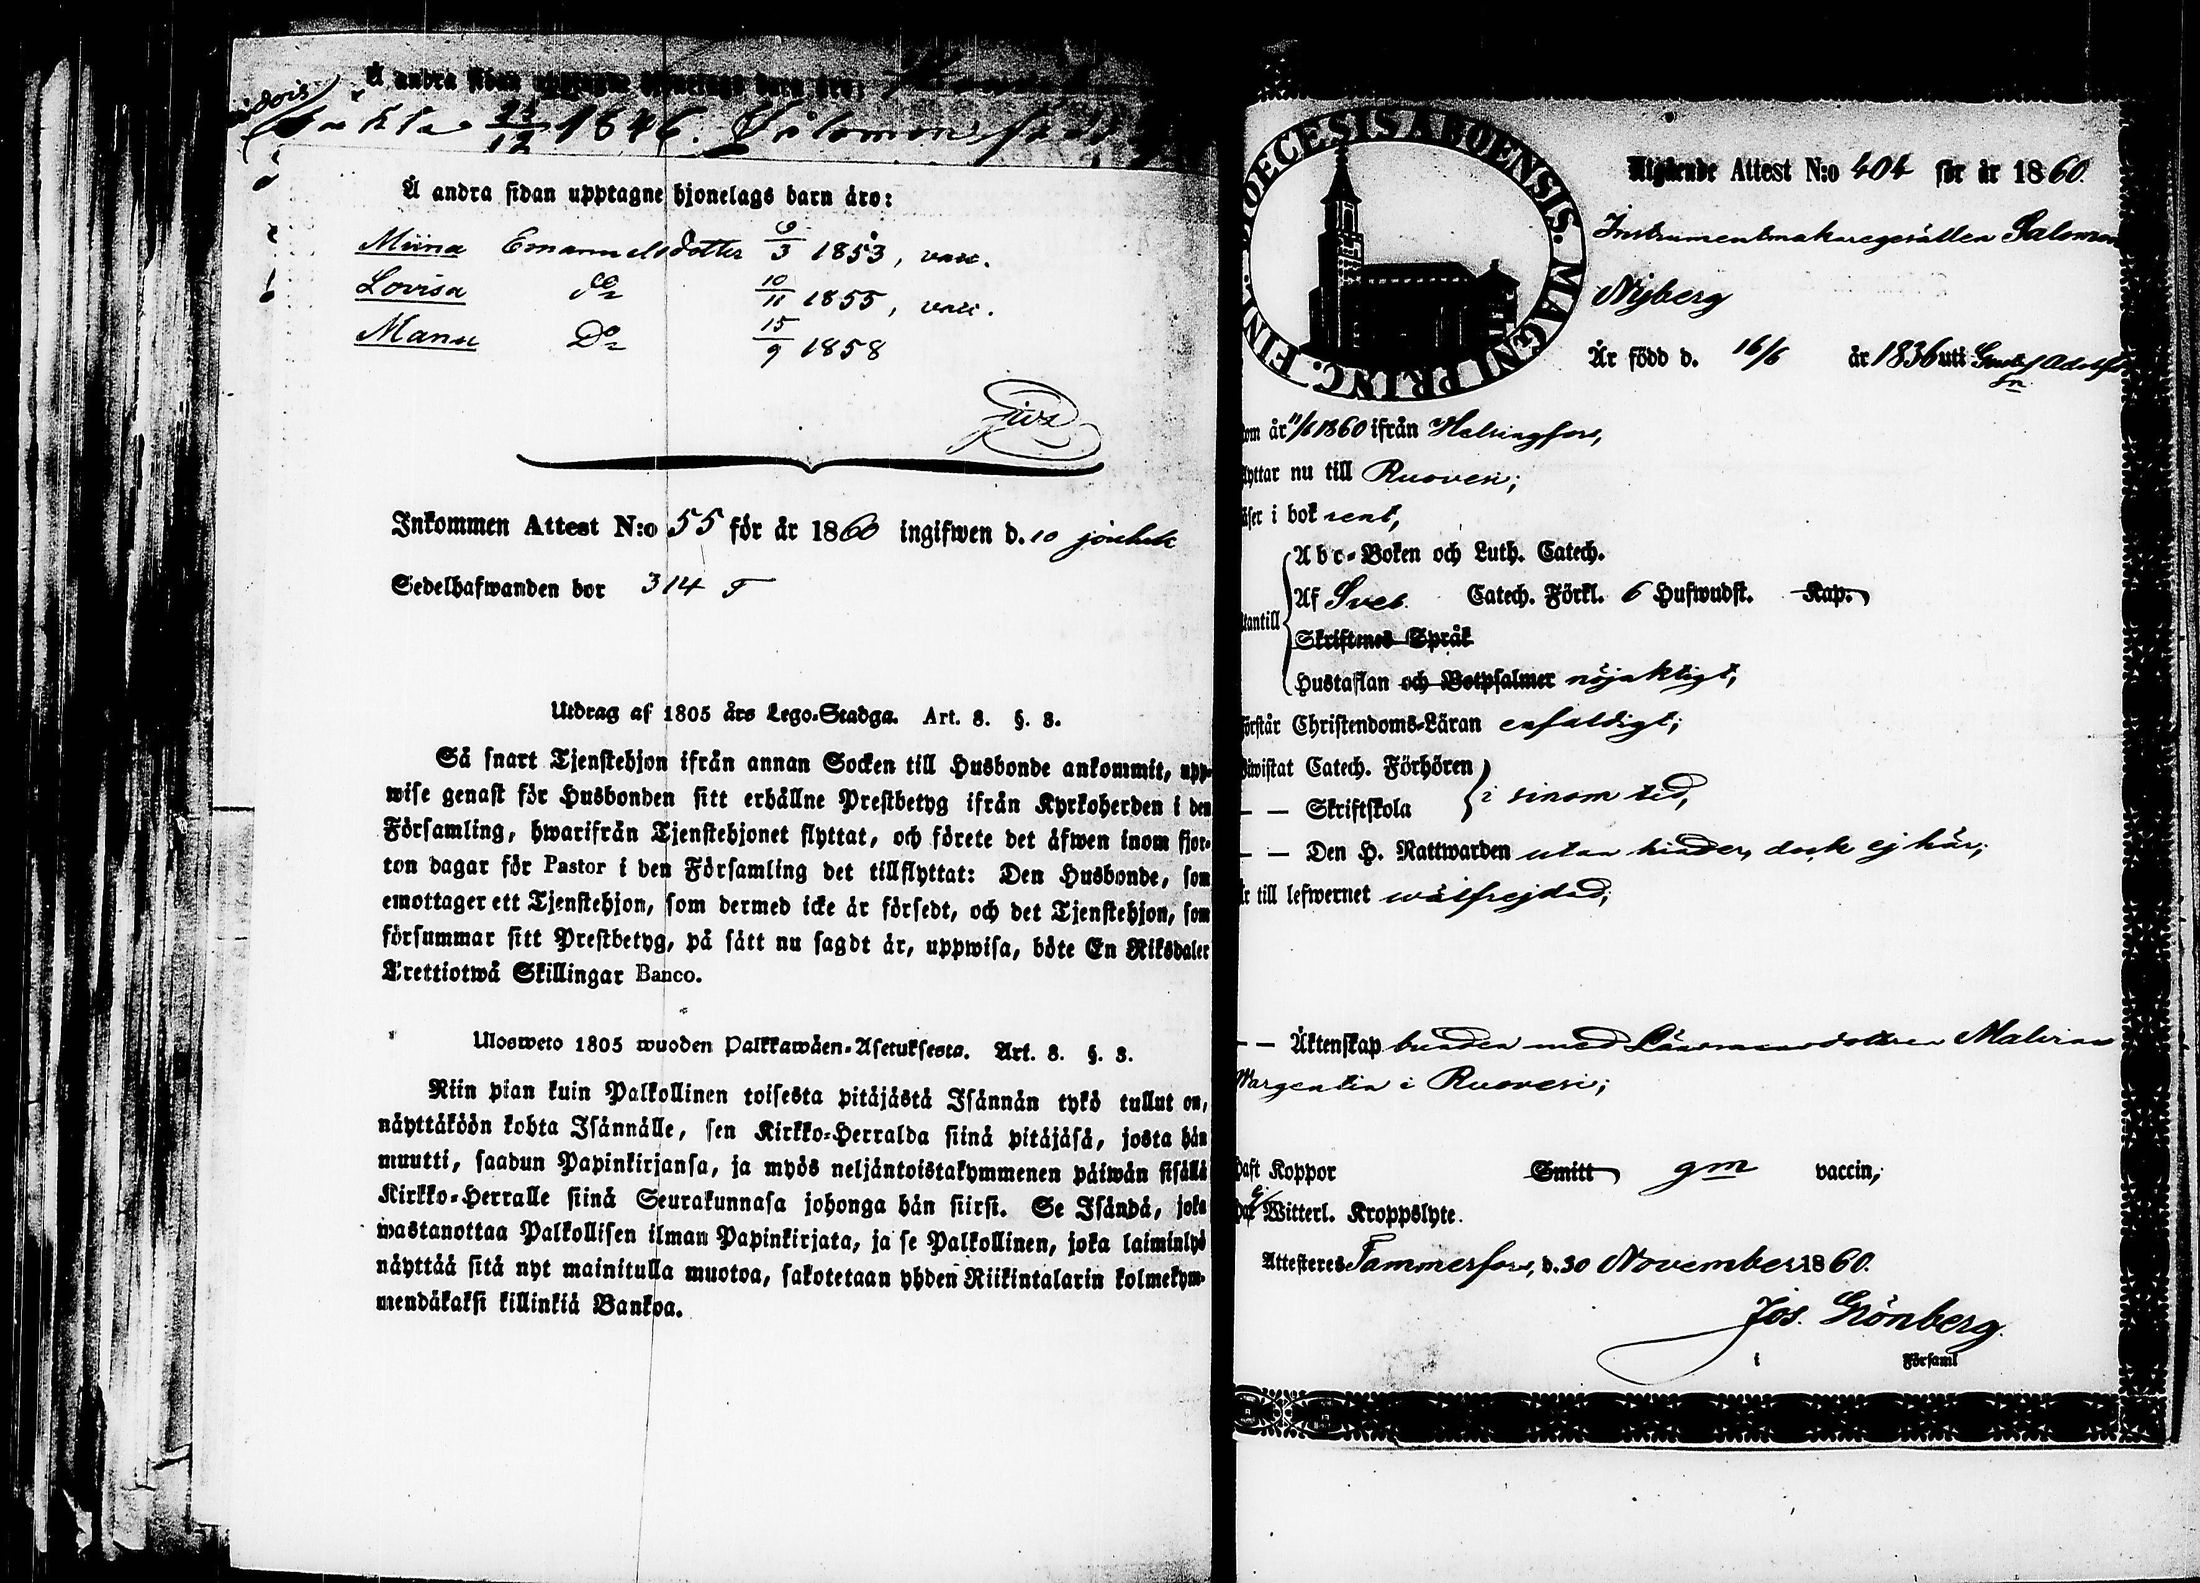 Å andra sidan upptagne hjonelags barn äro:
23/12 1846. Salomon född
Å andra sidan upptagne hjonelags barn äro:
Miina Emanuelsdotter 6/3 1853, vacc.
Lovisa Do 10/11 1855, vacc.
Manu Do 15/9 1858
Inkommen Attest N:o 55 för år 1860 ingifwen d. 10
Sedelhafwanden bor 314
Utdrag af 1805 års Lego-Stadga. Art. 8. §. 8.
Så snart Tjenstehjon ifrån annan Socken till Husbonde ankommit, upp-
wise genast för Husbonden sitt erhållne Prestbetyg ifrån Kyrkoherden i den
Församling, hwarifrån Tjenstehjonet flyttat, och förete det äfwen inom fjor-
ton dagar för Pastor i den Församling det tillflyttat: Den Husbonde, som
emottager ett Tjenstehjon, som dermed icke är försedt, och det Tjenstehjon, som
försummar sitt Prestbetyg, på sätt nu sagdt är, uppwisa, böte En Riksdaler
Trettiotwå Skillingar Banco.
Ulosweto 1805 wuoden Palkkawäen-Asetuksesta. Art. 8. §. 8.
Niin pian kuin Palkollinen toisesta pitäjästä Isännän tykö tullut on,
näyttäköön kohta Isännälle, sen Kirkko-Herralda siinä pitäjäsä, josta hän
muutti, saadun Papinkirjansa, ja myös neljäntoistakymmenen päiwän sisällä
Kirkko-Herralle siinä Seurakunnasa johonga hän siirsi. Se Isändä, joka
wastanottaa Palkollisen ilman Papinkirjata, ja se Palkollinen, joka laiminlyö
näyttää sitä nyt mainitulla muotoa, sakotetaan yhden Riikintalarin kolmekym-
mendäkaksi killinkiä Bankoa.
DIOECESIS ABOENSIS. MAGNI PRINC. FINL.
Utgående Attest N:o 404 för år 1860.
Instrumentmakaregesällen Salomon
Nyberg
Är född d. 16/6 år 1836 uti Gustaf Adolfs
sn
kom år 11/6 1860 ifrån Helsingfors,
flyttar nu till Ruovesi;
läser i bok rent,
utantill
Abc-Boken och Luth. Catech.
Af Sveb. Catech. Förkl. 6 Hufwudst. Kap.
Skriftenes Språk
Hustaflan och Botpsalmer nöjaktigt,
förstår Christendoms-Läran enfaldigt;
biwistat Catech. Förhören
— — Skriftskola
i sinom tid,
— — Den H. Nattwarden utan hinder, dock ej här;
är till lefwernet wälfrejdad;
— — Äktenskap bunden med Länsmansdottren Malvina
Wargentin i Ruovesi;
haft Koppor Smitt gm vaccin;
har ej Witterl. Kroppslyte.
Attesteres Tammerfors, d. 30 November 1860.
Jos. Grönberg.
i Församl